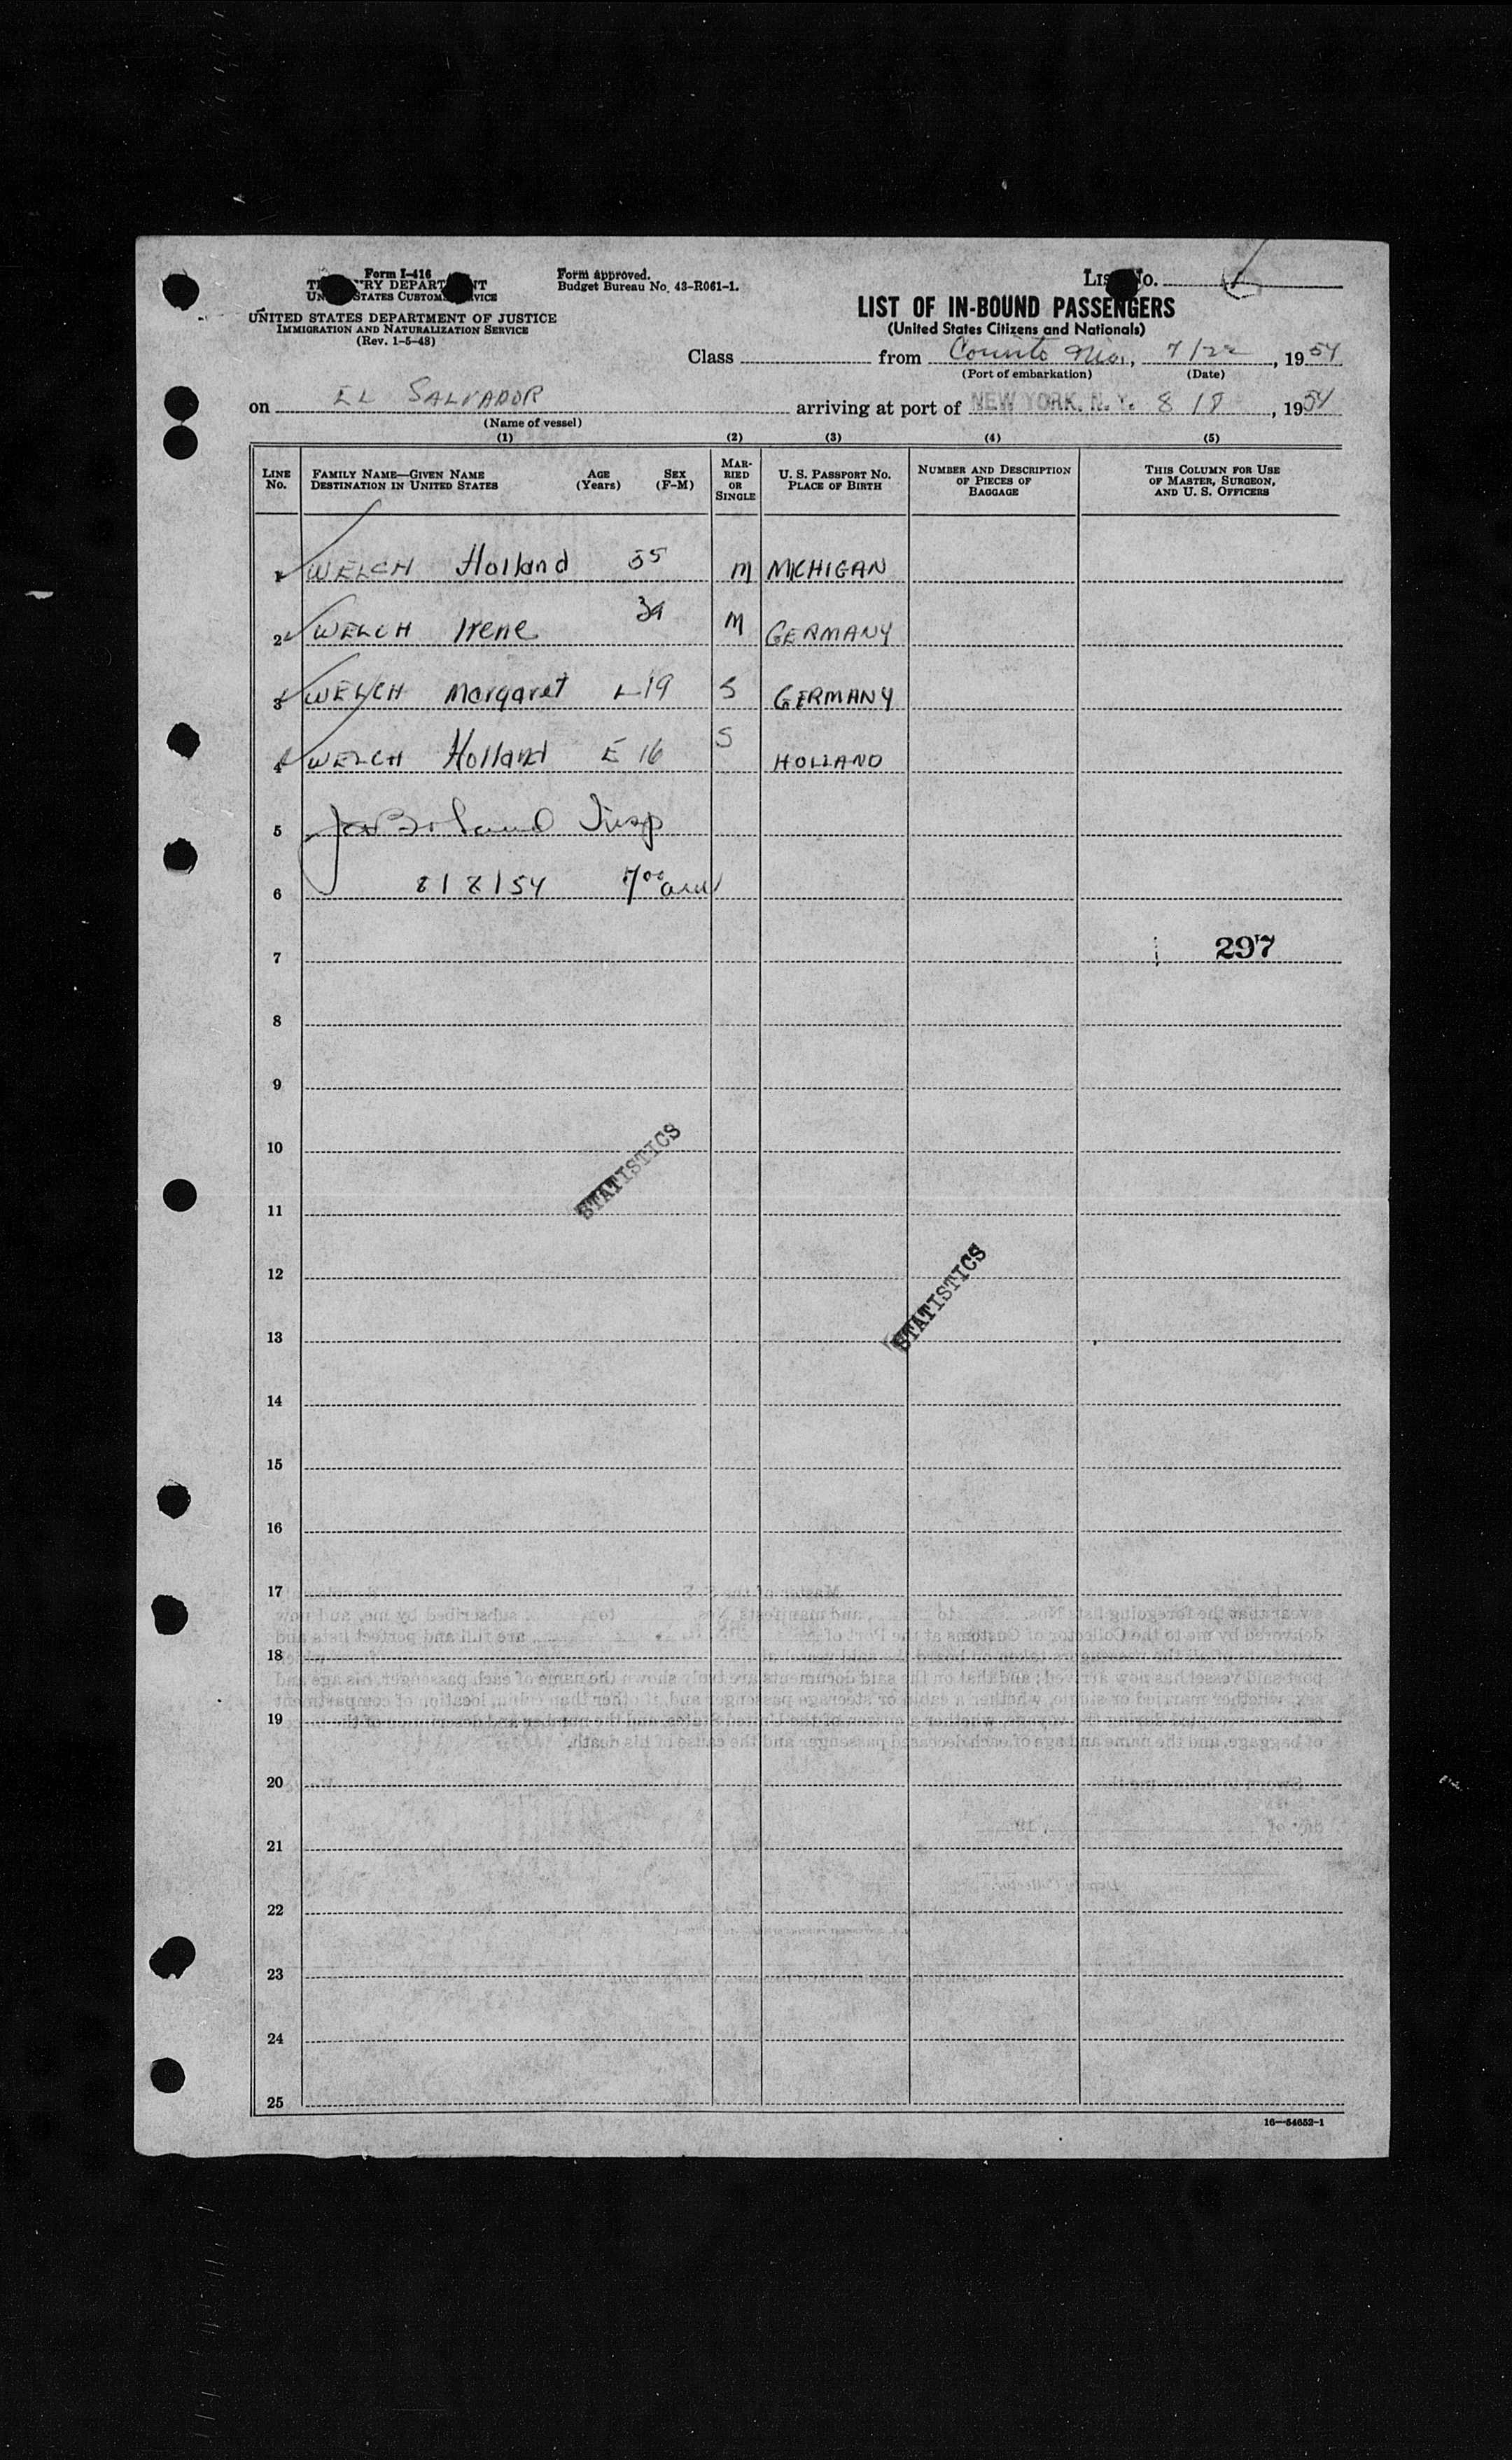 Form I-416
TREASURY DEPARTMENT
UNITED STATES CUSTOMS SERVICE
UNITED STATES DEPARTMENT OF JUSTICE
IMMIGRATION AND NATURALIZATION SERVICE
(Rev. 1-5-48)
Form approved.
Budget Bureau No. 43-R061-1.
LIST No.
LIST OF IN-BOUND PASSENGERS
(United States Citizens and Nationals)
Class from Corinto Nic., 7/22, 1954
(Port of embarkation) (Date)
on EL SALVADOR arriving at port of NEW YORK, N. Y. 8/8, 1954
(Name of vessel)
(1) (2) (3) (4) (5)
LINE No. FAMILY NAME—GIVEN NAME DESTINATION IN UNITED STATES AGE (Years) SEX (F-M) MARRIED OR SINGLE U. S. PASSPORT No. PLACE OF BIRTH NUMBER AND DESCRIPTION OF PIECES OF BAGGAGE THIS COLUMN FOR USE OF MASTER, SURGEON, AND U. S. OFFICERS
1 WELCH Holland 55 M MICHIGAN
2 WELCH Irene 39 M GERMANY
3 WELCH Margaret L 19 S GERMANY
4 WELCH Holland E 16 S HOLLAND
5 Boland Insp
6 8/8/54 7 00 am
7 297
8
9
10
STATISTICS
11
12
STATISTICS
13
14
15
16
17
18
19
20
21
22
23
24
25
16—54652-1